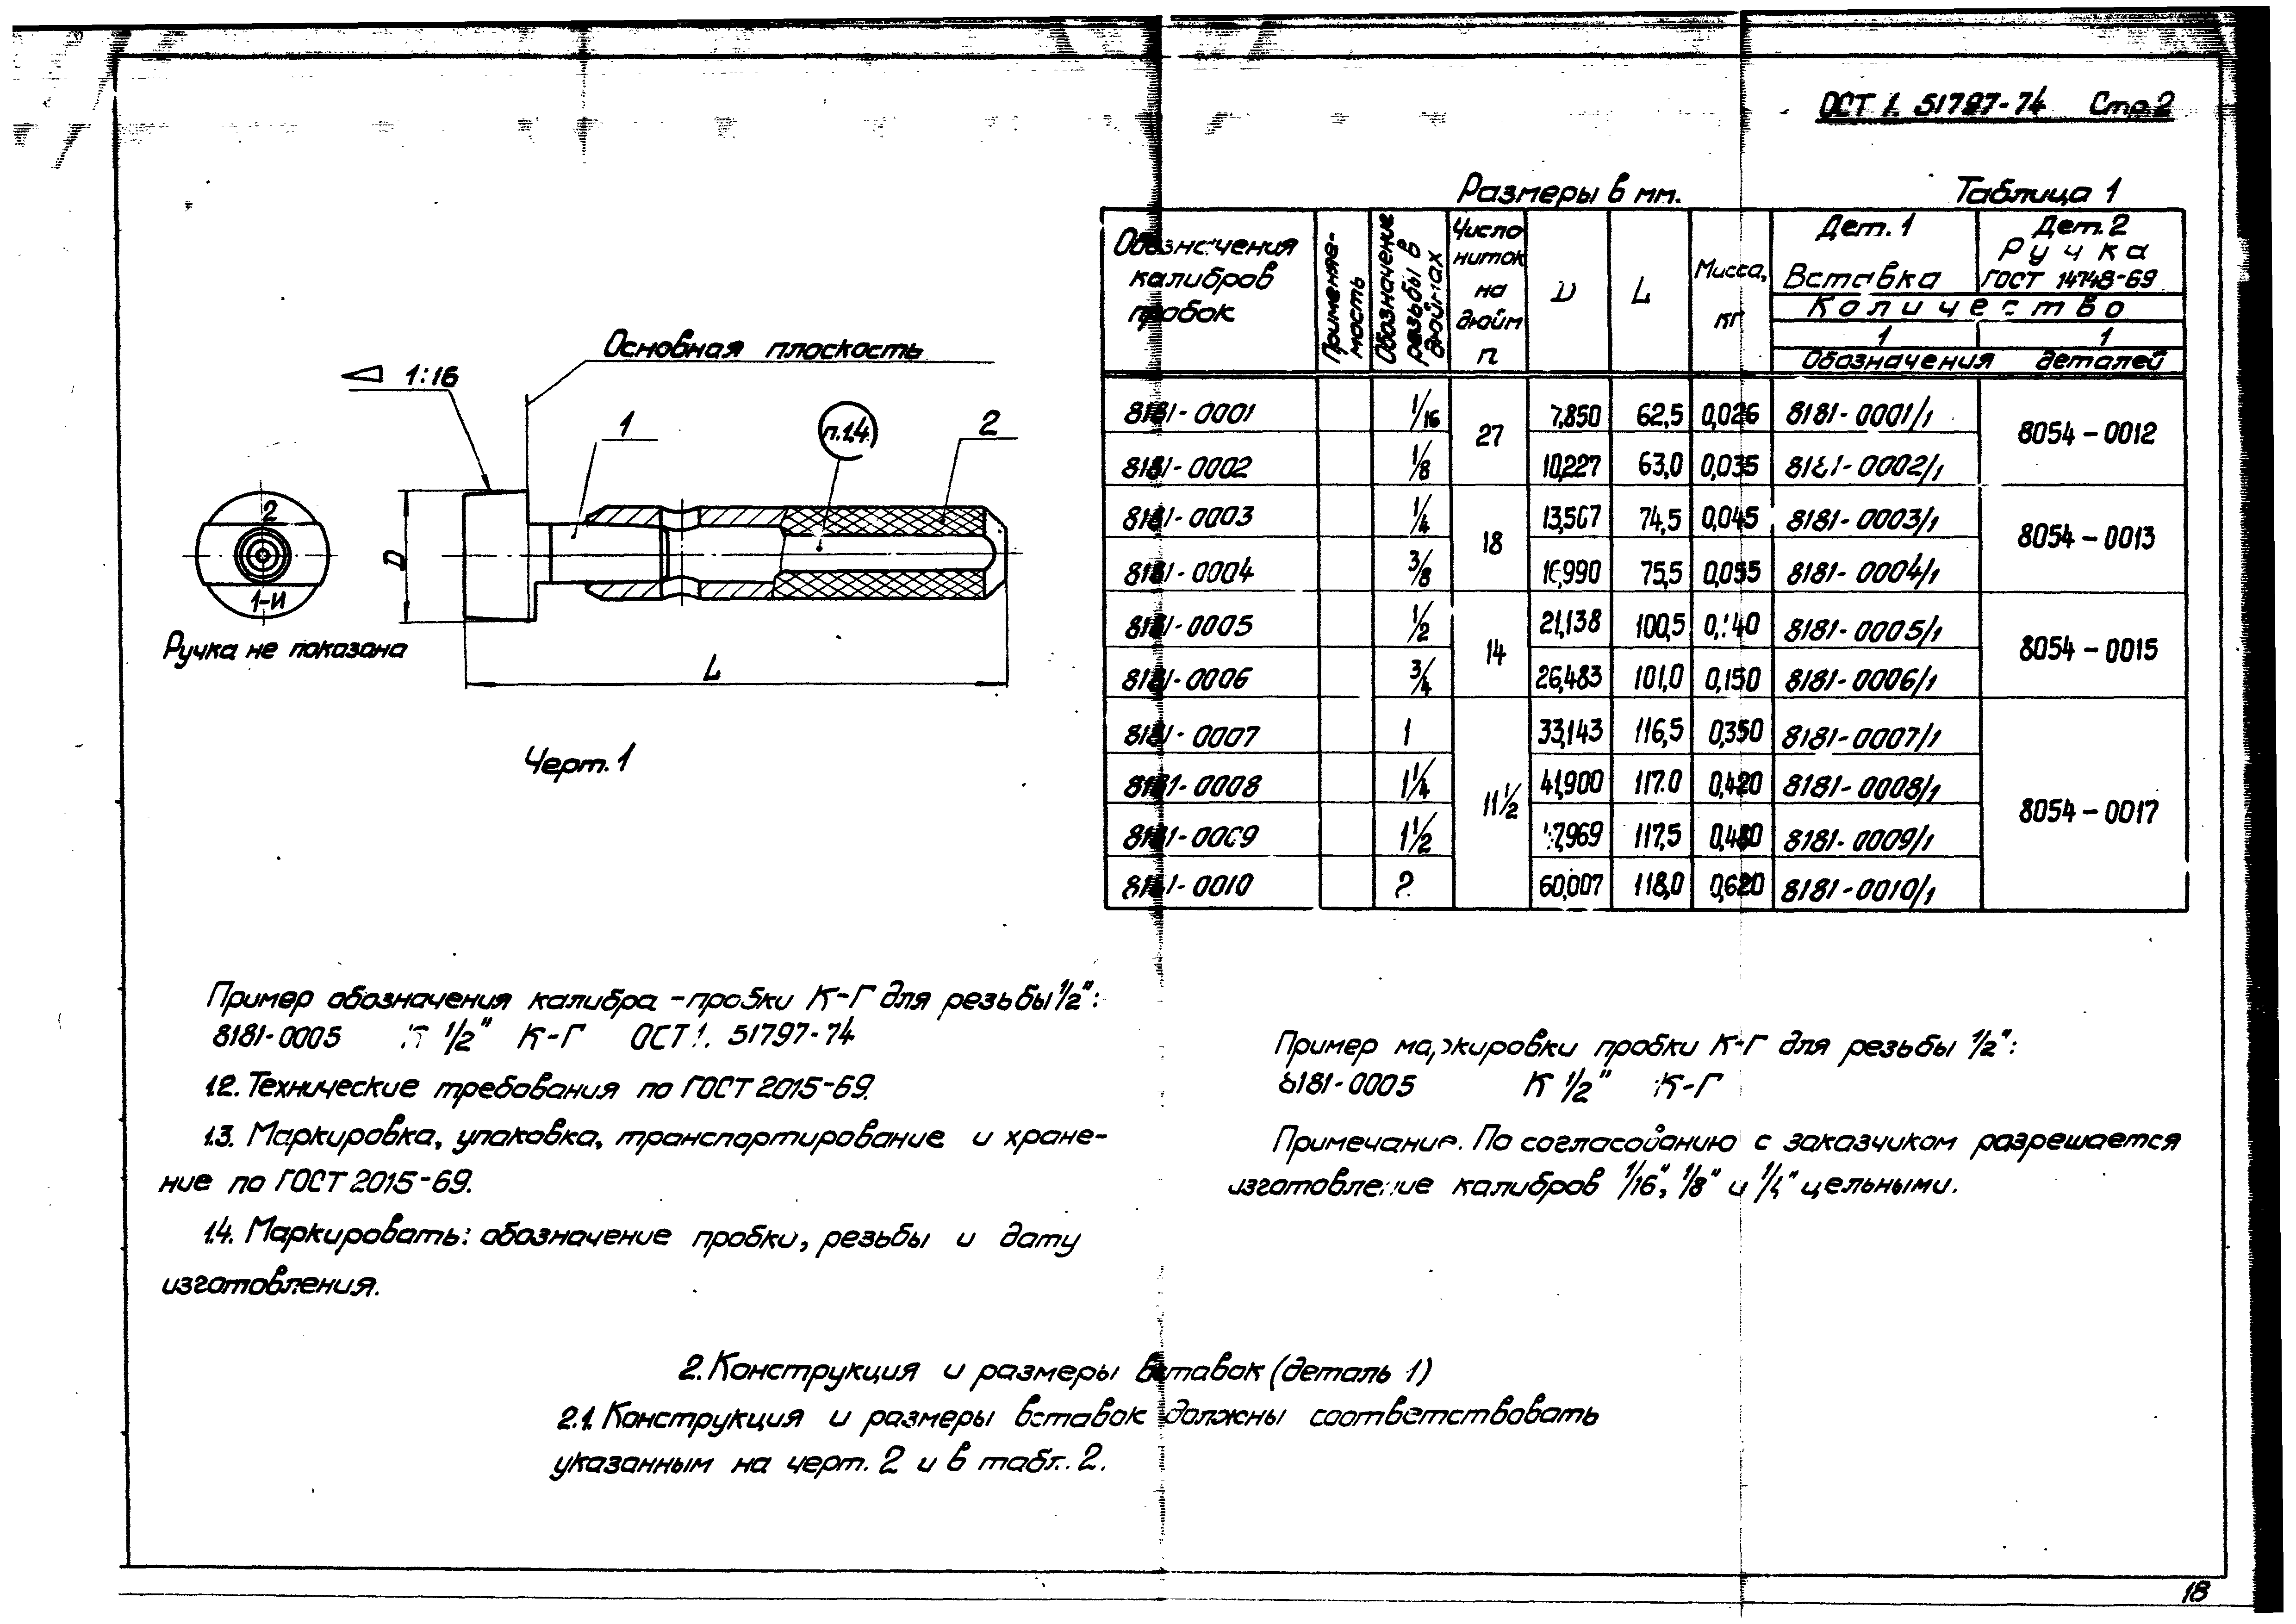 ОСТ 1. 51797-74 Стр.2
Размеры в мм. Таблица 1
Обозначения калибров пробок
Применяемость
Обозначение резьбы в дюймах
Число ниток на дюйм п
D
L
Масса, кг
Дет. 1 Вставка
Дет. 2 Ручка ГОСТ 14748-69
Количество
1 1
Обозначения деталей
8181-0001 1/16 27 7,850 62,5 0,026 8181-0001/1 8054-0012
8181-0002 1/8 10,227 63,0 0,035 8181-0002/1
8181-0003 1/4 18 13,567 74,5 0,045 8181-0003/1 8054-0013
8181-0004 3/8 16,990 75,5 0,055 8181-0004/1
8181-0005 1/2 14 21,138 100,5 8181-0005/1 8054-0015
8181-0006 3/4 26,483 101,0 0,150 8181-0006/1
8181-0007 1 11 1/2 33,143 116,5 0,350 8181-0007/1 8054-0017
8181-0008 1 1/4 41,900 117.0 0,420 8181-0008/1
8181-0009 1 1/2 117,5 0,480 8181-0009/1
8181-0010 2 60,007 118,0 0,620 8181-0010/1
Основная плоскость
1:16
1
п.1.4.
2
2
1-И
D
Ручка не показана
L
Черт. 1
Пример обозначения калибра-пробки К-Г для резьбы 1/2":
8181-0005 К 1/2" К-Г ОСТ 1. 51797-74
1.2. Технические требования по ГОСТ 2015-69.
1.3. Маркировка, упаковка, транспортирование и хране-
ние по ГОСТ 2015-69.
1.4. Маркировать: обозначение пробки, резьбы и дату
изготовления.
Пример маркировки пробки К-Г для резьбы 1/2":
8181-0005 К 1/2" К-Г
Примечание. По согласованию с заказчиком разрешается
изготовление калибров 1/16", 1/8" и 1/4" цельными.
2. Конструкция и размеры вставок (деталь 1)
2.1. Конструкция и размеры вставок должны соответствовать
указанным на черт. 2 и в табл. 2.
18